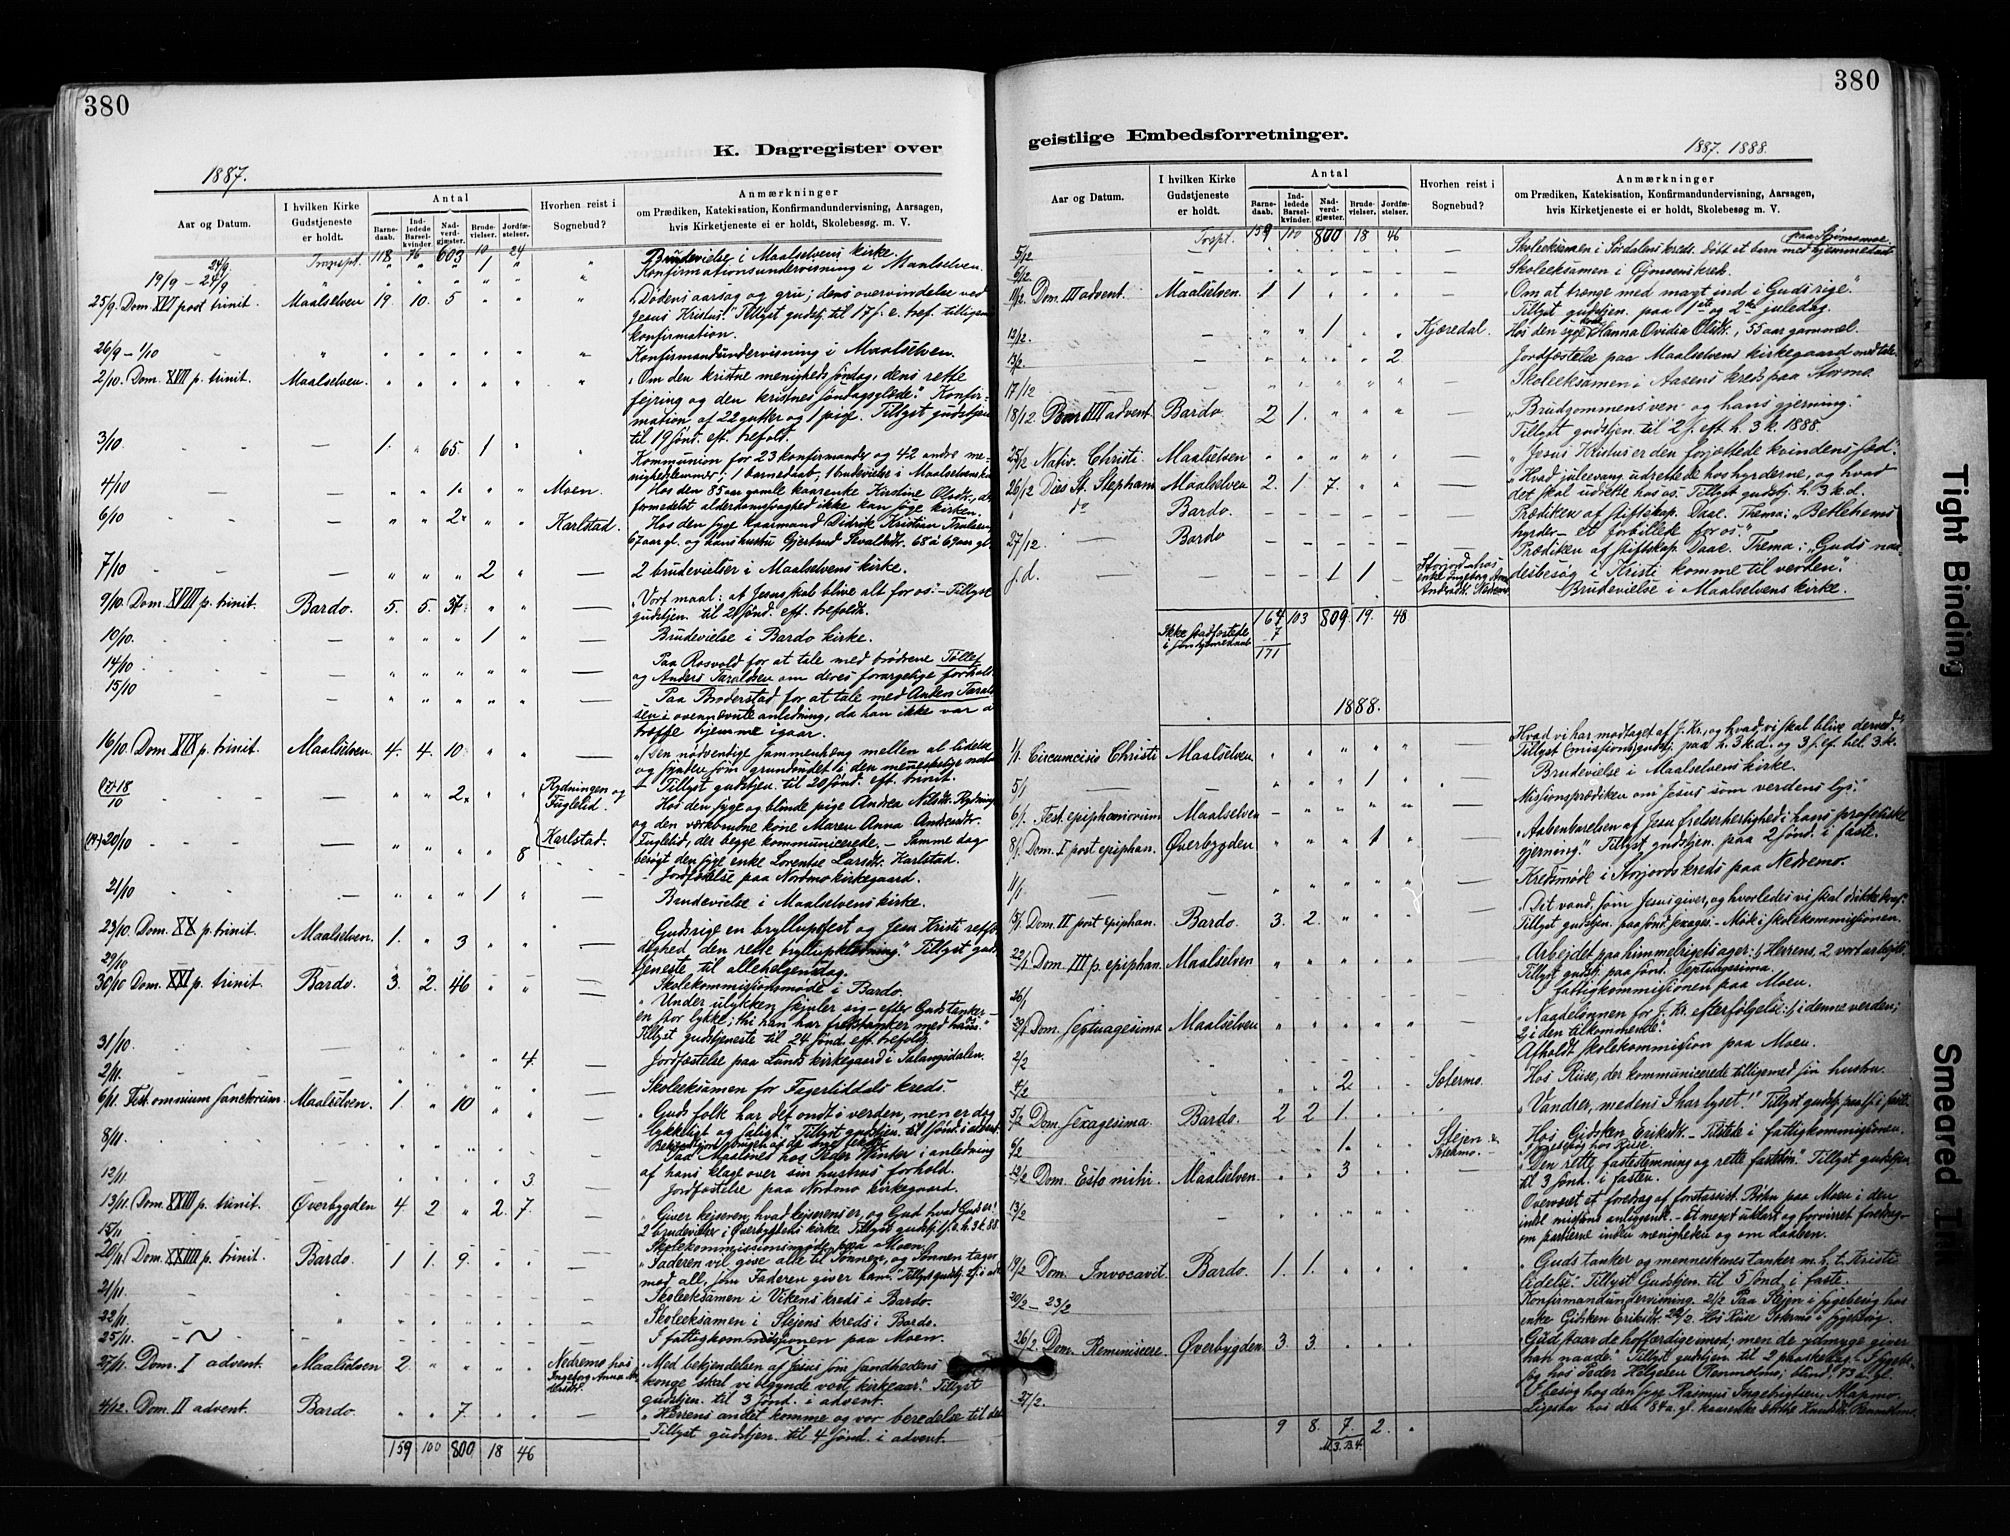 380
K. Dagregister over
1887.
Aar og Datum.
I hvilken Kirke Gudstjeneste er holdt.
Antal
Barne-daab.
Ind-ledede Barsel-kvinder.
Nad-verd-gjæster.
Brude-vielser.
Jordfæ-stelser.
Hvorhen reist i Sognebud?
Anmærkninger
om Prædiken, Katekisation, Konfirmandundervisning, Aarsagen,
hvis Kirketjeneste ei er holdt, Skolebesøg m. V.
Transpt. 118 76 603 10 24
24/9 " " " 1 " " Brudevielse i Maalselvens kirke.
19/9 – 24/9 " Konfirmationsundervisning i Maalselven.
25/9 Dom. XVI post trinit. Maalselven 19. 10. 5 " " " „Dødens aarsag og gru; dens overvindelse ved
Jesus Kristus." Tillyst gudstj. til 17 s. e. tref. tilligemed
konfirmation.
26/9 – 1/10 " Konfirmandundervisning i Maalselven.
2/10. Dom. XVII p. trinit. Maalselven. " " " " " " „Om den kristne menigheds søndag, dens rette
fejring og den kristnes søndagsglæde." Konfir-
mation af 22 gutter og 1 pige. Tillyst gudstjen.
til 19 sønd. eft. trefold.
3/10 — 1. " 65. 1 " Kommunion for 23 konfirmander og 42 andre me-
nighedslemmer; 1 barnedaab, 1 brudevielse i Maalselvens kirke
4/10 — " " 1. " " Moen. Hos den 85 aar gamle kaarenke Kirstine Olsdtr., der
formedelst alderdomssvaghed ikke kan søge kirken.
6/10 " " 2. " " Karlstad. Hos den syge kaarmand Didrik Kristian Truelsen
67 aar gl. og hans hustru Gjertrud Sevaldsdtr. 68 à 69 aar gl.
7/10 — " " " 2 " — 2 brudevielser i Maalselvens kirke.
9/10. Dom. XVIII p. trinit. Bardo. 5. 5. 37. " " — „Vort maal: at Jesus skal blive alt for os." – Tillyst
gudstjen. til 21 sønd. eft. trefoldh.
10/10. " " " 1 " — Brudevielse i Bardo kirke.
14/10 " " " " " — Paa Rosvold for at tale med brødrene Tollef
og Anders Taraldsen om deres forargelige forhold.
15/10 " " " " " — Paa Broderstad for at tale med Anders Tarald-
sen i ovennævnte anledning, da han ikke var at
træffe hjemme igaar.
16/10 Dom. XIX p. trinit. Maalselven. 4. 4. 10. " " — „Den nødvendige sammenhæng mellem al lidelse
og synden som grundondet i den menneskelige natur"
Tillyst gudstjen. til 20 sønd. eft. trinit.
(17)-18/10 " " 2. " " Rydningen og Fuglelid. Hos den syge og blinde pige Andrea Nilsdtr. Rydningen
og den værkbrudne kone Maren Anna Andersdtr.
(19)-20/10 " " " " 8 Karlstad. Fuglelid, der begge kommunicerede. – Samme dag
besøgt den syge enke Lorentse Larsdtr. Karlstad.
– Jordfæstelse paa Nordmo kirkegaard.
21/10 — " " " 1 " — Brudevielse i Maalselvens kirke.
23/10. Dom. XX p. trinit. Maalselven. 1. " 3 " " — „Gudsrige en bryllupsfest og Jesu Kristi retfær-
dighed den rette bryllupsklædning." Tillyst guds-
tjeneste til allehelgensdag.
29/10 Skolekommissionsmøde i Bardo.
30/10 Dom. XXI p. trinit. Bardo. 3. 2. 46 " " — „Under ulykken skjuler sig – efter Guds tanker –
en stor lykke; thi han har fredstanker med haus."
Tillyst gudstjeneste til 24 sønd. eft. trefold.
31/10 " " " " 4 — Jordfæstelse paa Lunds kirkegaard i Salangsdalen.
2/11. " " " " " — Skoleeksamen for Fagerliddals kreds.
6/11. Fest. omnium sanctorum. Maalselven. 1. " 10 " " — „Guds folk har det ondt i verden, men er dog
lykkeligt og saligt." Tillyst gudstjen. til 1 sønd i advent.
8/11. " " " " " — Paa Maalsnes hos Peder Winter i anledning
af hans klage over sin hustrus forhold.
12/11 " " " " 3 — Jordfæstelse paa Nordmo kirkegaard.
13/11. Dom. XXIII p. trinit. Øverbygden 4 2 " 2. 7. — „Giver kejseren, hvad kejserens er, og Gud hvad Guds er."
2 brudevielser i Øverbygdens kirke. Tillyst gudstj. h. 3 k. 88.
15/11 Skolekommissionsmøde paa Moen.
20/11. Dom. XXIIII p. trinit. Bardo. 1 1. 9. " " — „Faderen vil give alle til Sønnen, og Sønnen tager
mod all, som Faderen giver ham." Tillyst gudstj. 2 s. i adv.
21/11 Skoleeksamen i Vikens kreds i Bardo.
22/11. Skoleeksamen i Stejens kreds i Bardo.
25/11. I fattigkommissionen paa Moen.
27/11. Dom. I advent. Maalselven 2. " " " " Nedremo hos Ingeborg Anna Andersdtr. „Med bekjendelsen af Jesus som sandhedens
konge skal vi begynde vort kirkeaar." Tillyst
gudstjen. til 3 sønd. i advent.
4/12. Dom. II advent. Bardo. " " 7. " " — „Herrens andet komme og vor beredelse til det."
Tillyst gudstjen. til 4 sønd. i advent.
159 100 800 18 46
380
geistlige Embedsforretninger.
1887. 1888.
Aar og Datum.
I hvilken Kirke Gudstjeneste er holdt.
Antal
Barne-daab.
Ind-ledede Barsel-kvinder.
Nad-verd-gjæster.
Brude-vielser.
Jordfæ-stelser.
Hvorhen reist i Sognebud?
Anmærkninger
om Prædiken, Katekisation, Konfirmandundervisning, Aarsagen,
hvis Kirketjeneste ei er holdt, Skolebesøg m. V.
Trspt. 159 100 800 18 46
5/12 — Skoleeksamen i Sørdalens kreds. Døbt et barn med hjemmedaab
6/12 — Skoleeksamen i Gjonsens kreds.
11/12. Dom. III advent. Maalselven. 1 1 " " " — „Om at trænge med magt ind i Guds rige."
Tillyst gudstjen. paa 1ste og 2den juledag.
13/12. — " " 1 " " Kjæredal. Hos den syge kone Hanna Ovidia Olsdtr., 55 aar gammel.
13/12. — " " " " 2 — Jordfæstelse paa Maalselvens kirkegaard med tale.
17/12 — Skoleeksamen i Aasens kreds paa Stormo.
18/12 Dom. IIII advent. Bardo. 2 1. " " " — „Brudgommens ven og hans gjerning."
Tillyst gudstjen. til 2 s. eft. h. 3 k. 1888.
25/12 Nativ. Christi Maalselven " " " " " — „Jesus Kristus er den forjættede kvindens sæd."
26/12 Dies St. Stephani Maalselven 2. 1. 7. " " — „Hvad julesang udrettede hos hyrderne, og hvad
det skal udrette hos os. Tillyst gudstj. h. 3 k. d.
" do Bardo. – – – – – — Prædiken af stiftskap. Daae. Thema: „Betlehems
hyrder – et forbillede for os."
27/12. — Bardo – – – – – — Prædiken af stiftskap. Daae. Trema: „Guds naa-
desbesøg i Kristi komme til verden."
s. d. — — – – 1 1 – Storjord hos enke Ingeborg Anna Andersdtr. Nedremo Brudevielse i Maalselvens kirke.
164 103 809 19. 48
Ikke stadfæstede i hjemmedaab 7
171
1888.
1/1. Circumcisio Christi Maalselven " " " " " — „Hvad vi har modtaget af J. Kr., og hvad vi skal blive derved."
Tillyst (missions)gudstj. paa h. 3 k. d. og 3 s. ef. hel. 3 k.
5/1 — — " " " 1 " — Brudevielse i Maalselvens kirke.
6/1. Fest. epiphaniorum Maalselven – " " " " — Missionsprædiken om „Jesus som verdens lys."
8/1. Dom. I post epiphan. Øverbygden " " " 1 " — „Aabenbarelsen af Jesu frelserherlighed i hans profetiske
gjerning." Tillyst gudstjen. paa 2 sønd. i faste.
11/1. — — " " " " " — Kredsmøde i Storjords kreds paa Nedremo.
15/1. Dom. II post epiphan. Bardo. 3. 2. " " " — „Det vand, som Jesus giver, og hvorledes vi skal drikke deraf."
Tillyst gudstjen. paa sønd. sexages. – Møde i skolekommissionen.
22/1 Dom. III p. epiphan. Maalselven " " " " " — „Arbejdet paa himmelrigets ager: 1, Herrens, 2, vort arbejde."
Tillyst gudstj. paa sønd. Septuagesima.
26/1 — I fattigkommissionen paa Moen.
29/1 Dom. Septuagesima Maalselven " " " " " — „Naadelønnen for J. Kr. efterfølgelse: 1, i denne verden;
2, i den tilkommende."
2/2 Afholdt skolekommission paa Moen.
4/2 " " 2 " " Sætermo. Hos Ruse, der kommunicerede tilligemed sin hustru.
5/2 Dom. Sexagesima Bardo. 2 2 1. " " „Vandrer, medens I har lyset!" Tillyst gudstj. paa 1 s. i faste.
6/2 1. Stejen & Sætermo. Hos Gidsken Eriksdtr. – Tilstede i fattigkommissionen.
Sygebesøg hos Ruse.
12/2 Dom. Esto mihi. Maalselven. " " 3 " — „Den rette fastestemning og rette fastetid". Tillyst gudstjen.
til 3 sønd. i fasten.
13/2 — Overværet et foredrag af forstassist. Bøhn paa Moen i den
indre missions anliggende. – Et meget uklart og forvirret foredrag –
om partierne inden menigheden og om daaben.
19/2 Dom. Invocavit Bardo. 1. 1. " " " „Guds tanker og menneskenes tanker m. h. t. Kristi
lidelse". Tillyst Gudstjen. til 3 sønd. i faste.
20/2 – 23/2 Konfirmandundervisning. 21/2 Paa Stejen i sygebesøg hos
enke Gidsken Eriksdtr. 22/2. Hos Ruse Sætermo i sygebesøg.
26/2. Dom. Reminiscere. Øverbygden 3 3. " " " „Gud staar de hoffærdige imod; men de ydmyge giver
han naade." Tillyst gudstjen. til 2 paaskedag. – I sygebe-
søg hos Peder Helgesen Rønmelmo, blind, 73 a. gl.
27/2. I besøg hos den syge Rasmus Ingebrigtsen, Alapmo.
Ligesaa hos den 84 a. gl. kaarenke Knudsdtr. Rønmelmo.
9 8. 7. 2. "
M 3. B. 4.
Tight Binding
Smeared Ink